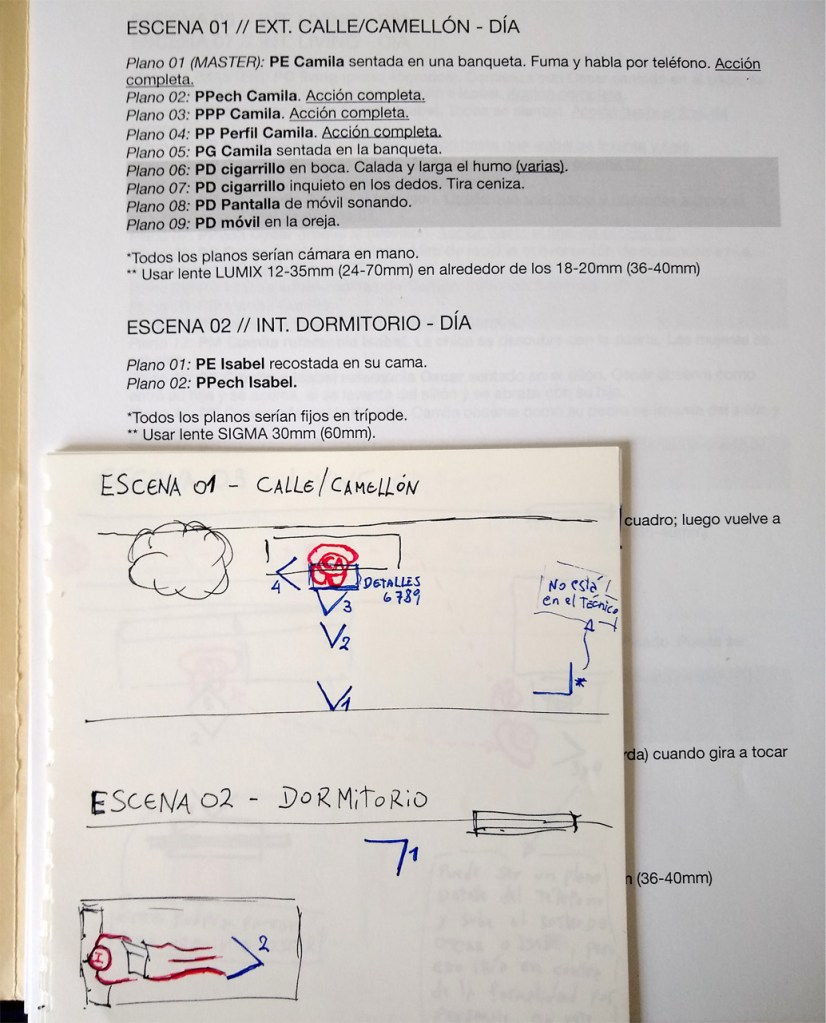 ESCENA 01 // EXT. CALLE/CAMELLÓN - DÍA
Plano 01 (MASTER): PE Camila sentada en una banqueta. Fuma y habla por teléfono. Acción
completa.
Plano 02: PPech Camila. Acción completa.
Plano 03: PPP Camila. Acción completa.
Plano 04: PP Perfil Camila. Acción completa.
Plano 05: PG Camila sentada en la banqueta.
Plano 06: PD cigarrillo en boca. Calada y larga el humo (varias).
Plano 07: PD cigarrillo inquieto en los dedos. Tira ceniza.
Plano 08: PD Pantalla de móvil sonando.
Plano 09: PD móvil en la oreja.
*Todos los planos serían cámara en mano.
** Usar lente LUMIX 12-35mm (24-70mm) en alrededor de los 18-20mm (36-40mm)
ESCENA 02 // INT. DORMITORIO - DÍA
Plano 01: PE Isabel recostada en su cama.
Plano 02: PPech Isabel.
*Todos los planos serían fijos en trípode.
** Usar lente SIGMA 30mm (60mm).
cuadro; luego vuelve a
da) cuando gira a tocar
(36-40mm)
ESCENA 01 - CALLE/CAMELLÓN
CA
4
DETALLES
6789
3
2
1
No está
en el Técnico
*
ESCENA 02 - DORMITORIO
1
I
2